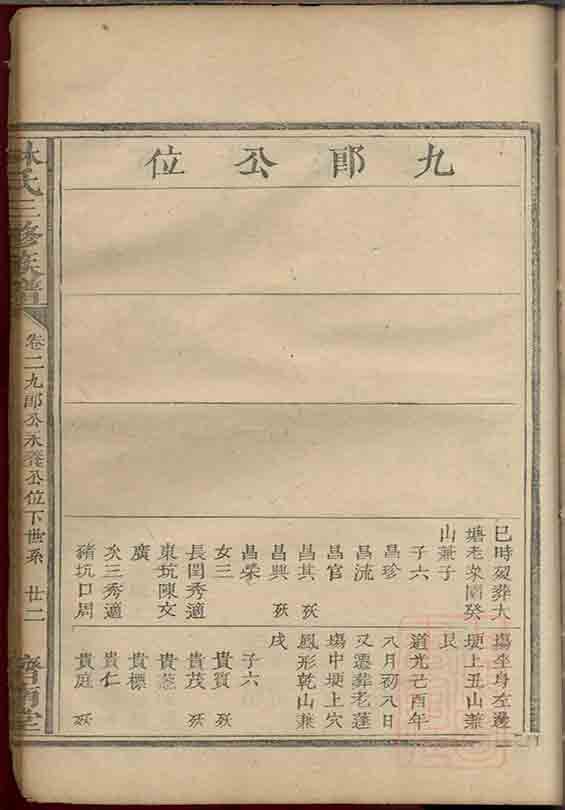 九郎公位
巳時歿葬大
塘老菜園癸
山兼子
子六
昌珍
昌流
昌官
昌其 歿
昌興 歿
昌榮
女三
長閏秀適
東坑陳文
廣
次三秀適
豬坑口周
塲坐身左邊
埂上丑山兼
艮
道光己酉年
八月初八日
又遷葬老蓬
塲中埂上穴
鳳形乾山兼
戌
子六
貴賓 歿
貴茂 歿
貴
貴標
貴仁
貴庭 歿
林氏三修族譜
卷二九郎公永 公位下世系 廿二
濟南堂